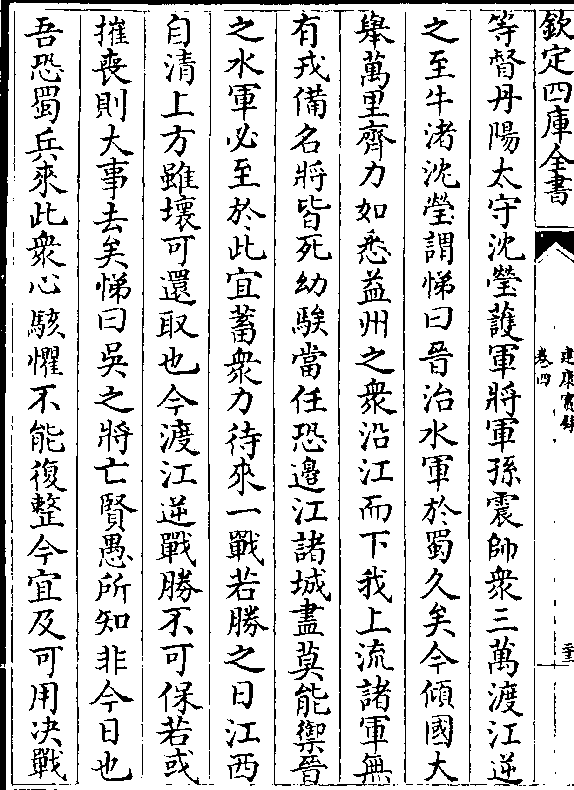 欽定四庫全書
建康實錄
卷四
等督丹陽太守沈瑩護軍將軍孫震帥衆三萬渡江逆
之至牛渚沈瑩謂悌曰晉治水軍於蜀久矣今傾國大
舉萬里齊力如悉益州之衆沿江而下我上流諸軍無
有戎備名將皆死幼騃當任恐邊江諸城盡莫能禦晉
之水軍必至於此宜蓄衆力待來一戰若勝之日江西
自清上方雖壞可還取也今渡江逆戰勝不可保若或
摧喪則大事去矣悌曰吳之將亡賢愚所知非今日也
吾恐蜀兵來此衆心駭懼不能復整今宜及可用決戰